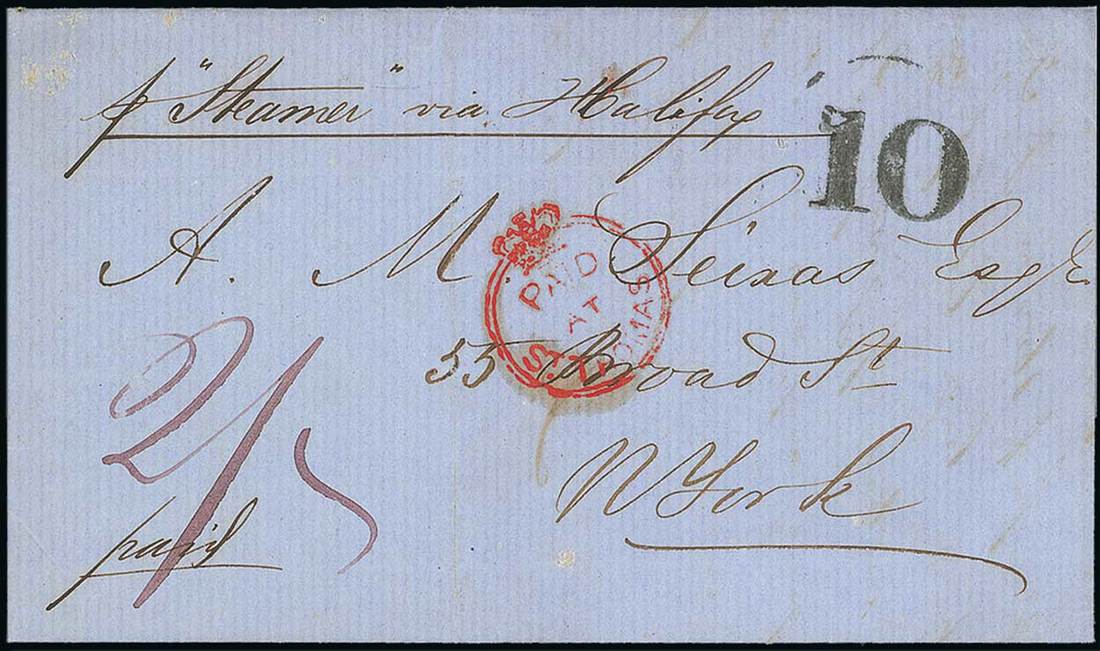 p "Steamer" via Halifax
10
A. M. Seixas Esqr
PAID
AT
ST. THOMAS
55 Broad St
N York
2/5
paid